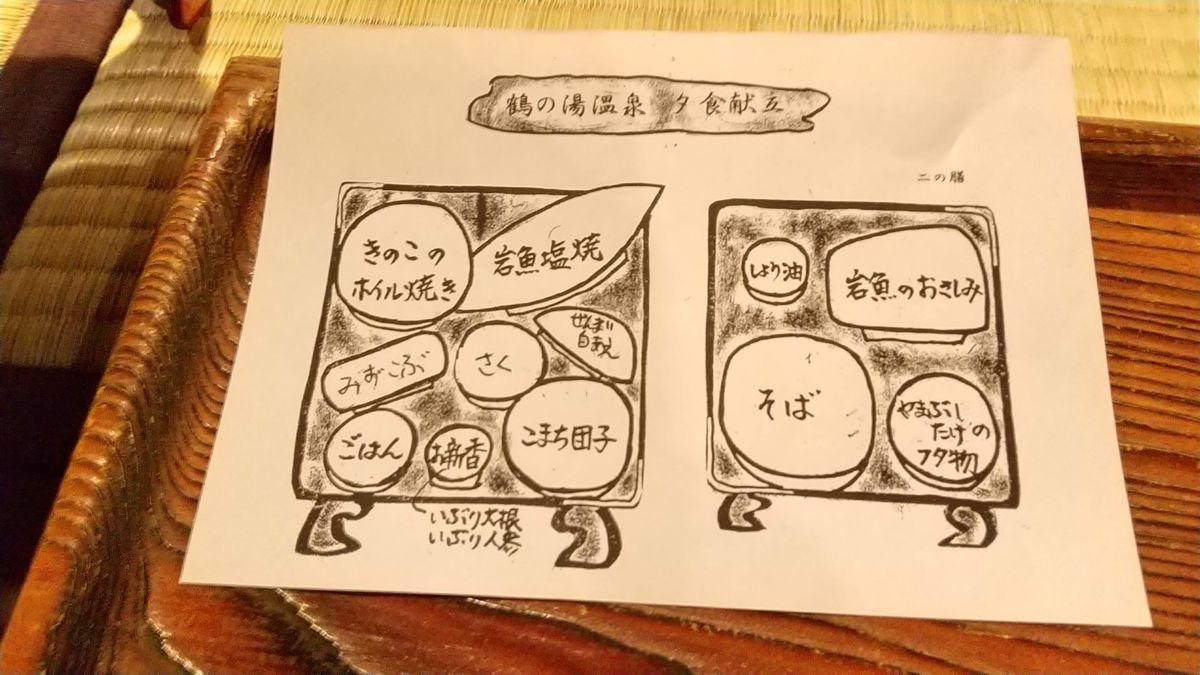 鶴の湯温泉 夕食献立
きのこの
ホイル焼き
岩魚塩焼
みずこぶ
さく
ぜんまい
ごはん
お新香
こまち団子
いぶり大根
いぶり人参
二の膳
しょうり油
岩魚のおさしみ
そば
やまぶし
たけの
フタ物